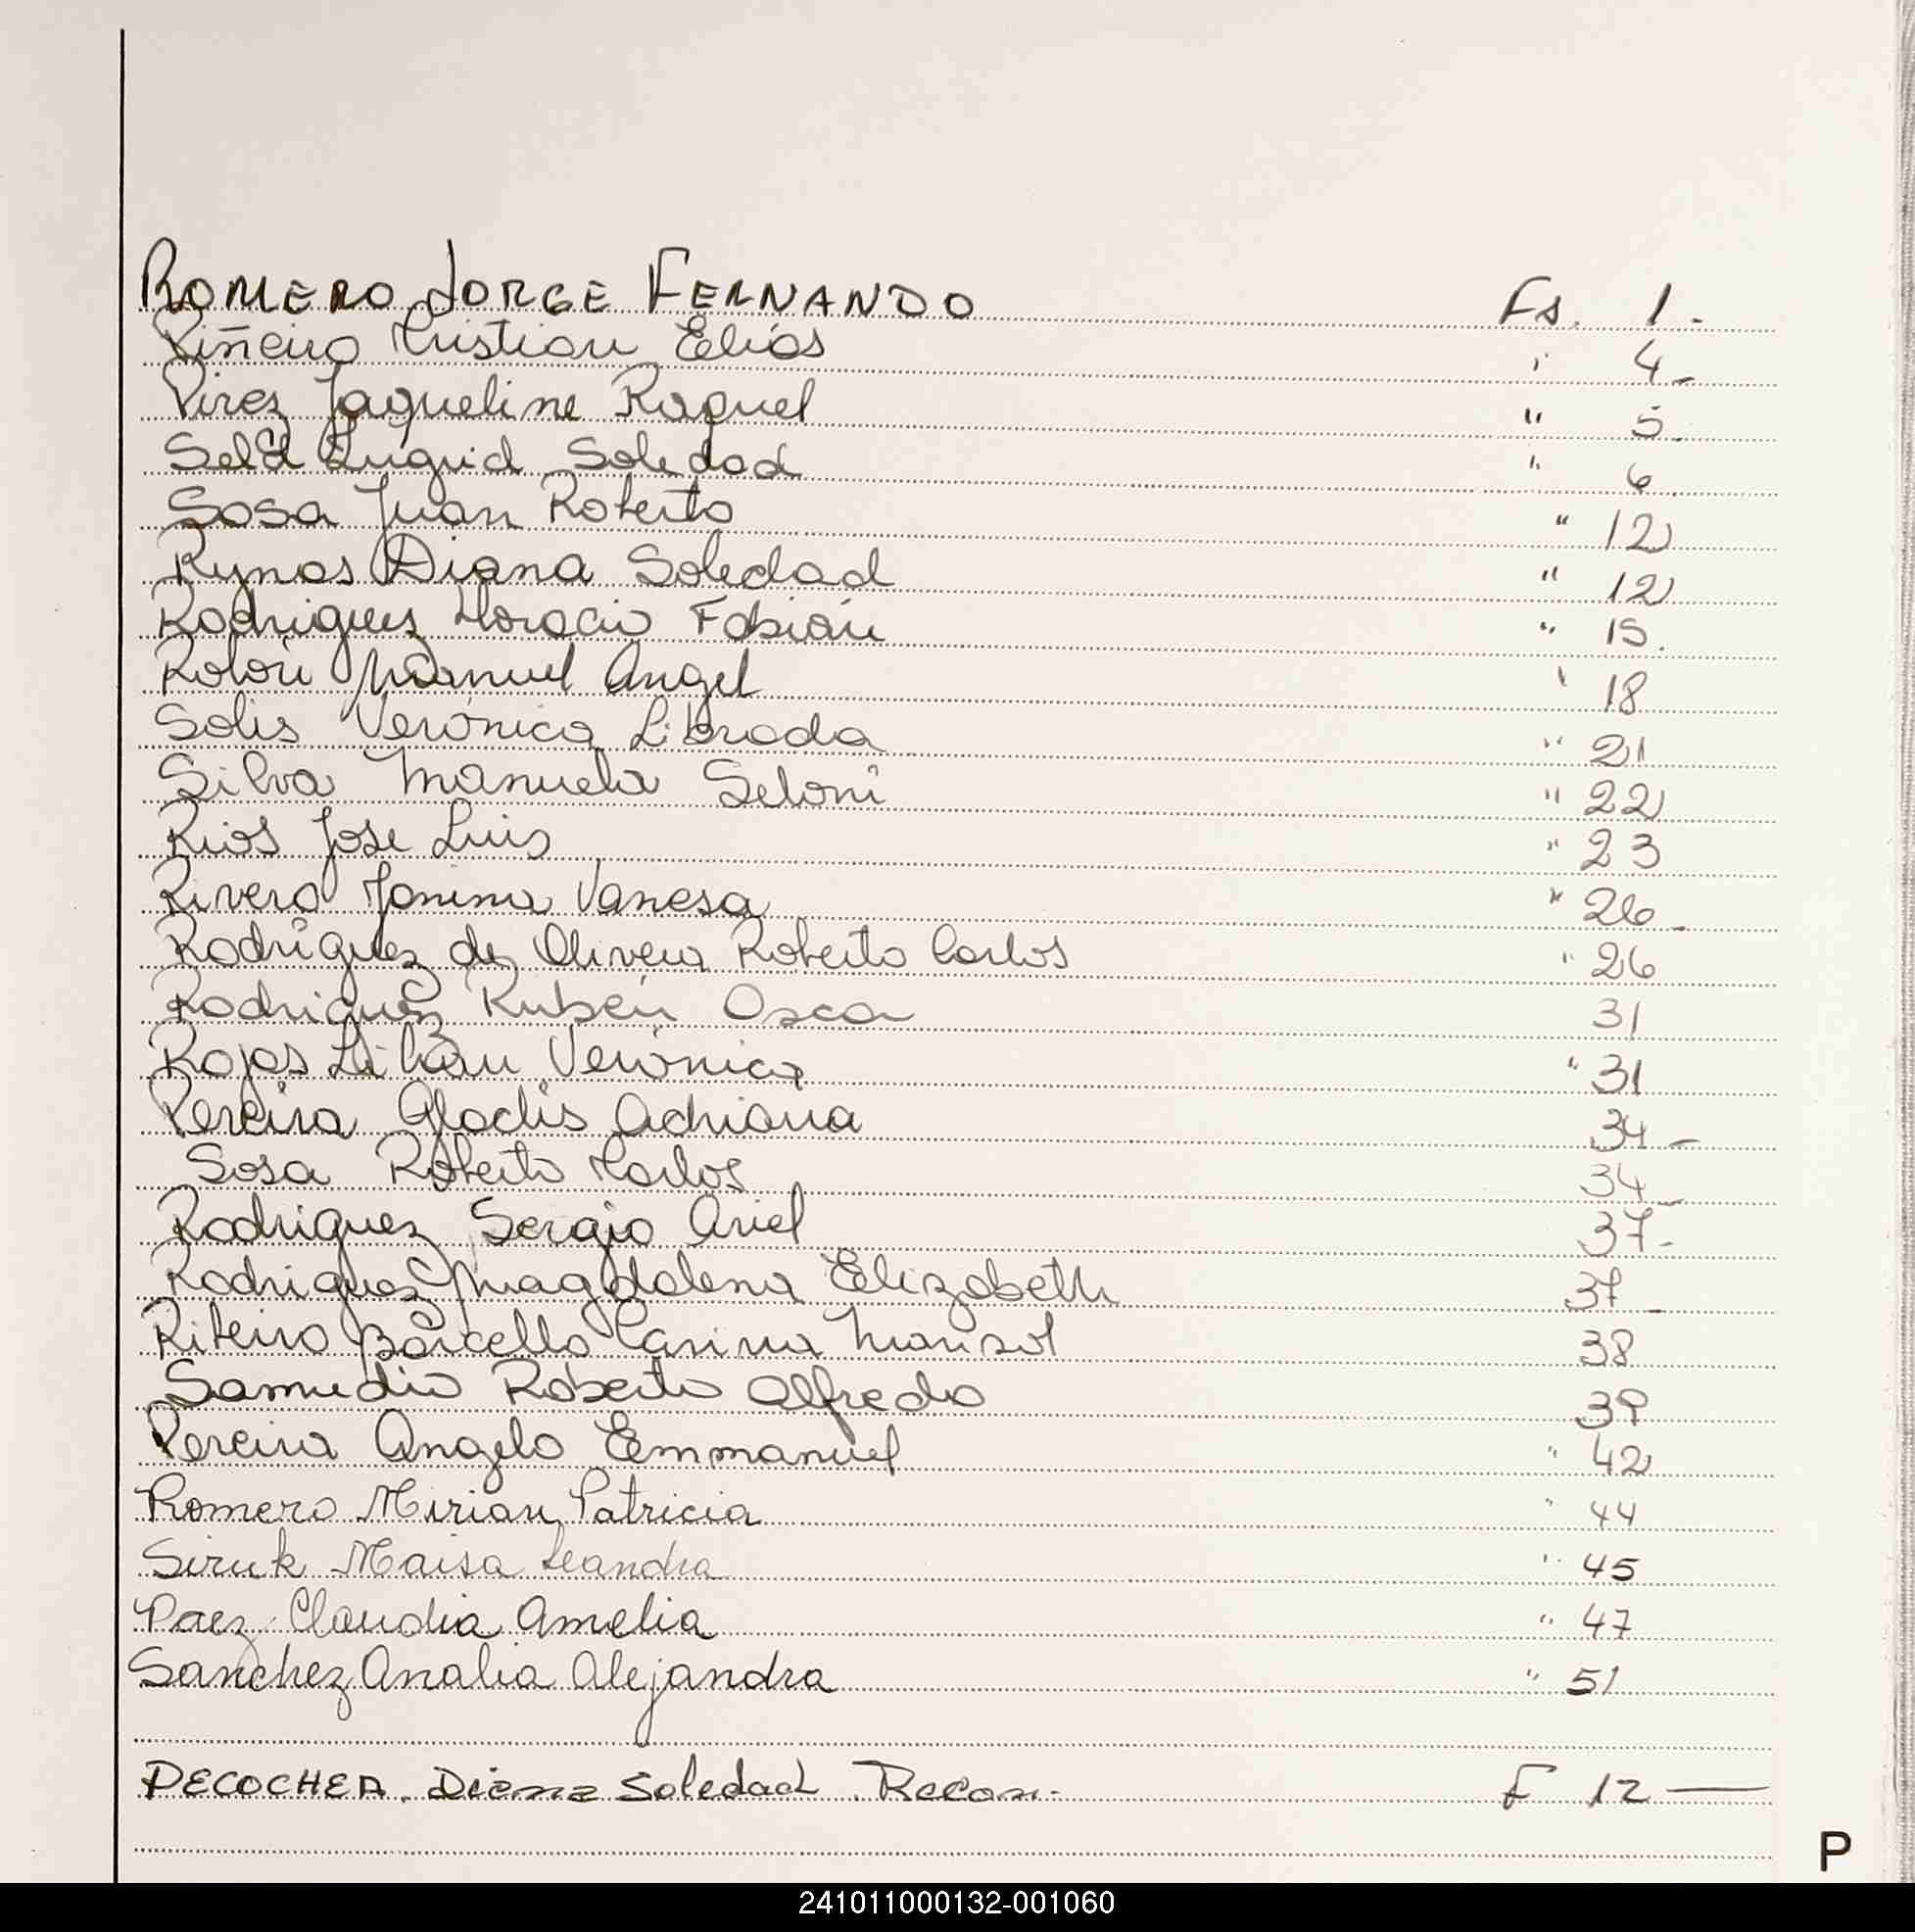 ROMERO JORGE FERNANDO Fs. 1.-
Piñeiro Cristian Elías " 4-
Pirez Jaqueline Raquel " 5.
Ingrid Soledad " 6.
Sosa Juan Roberto " 12
Rynos Diana Soledad " 12
Rodriguez Horacio Fabián " 15.
Rolón Manuel Angel " 18
Solis Verónica Librada " 21
Silva Manuela Seloni " 22
Rios Jose Luis " 23
Rivero Vanesa " 26-
Rodríguez de Olivera Roberto Carlos " 26
Rodriguez Rubén Oscar 31
Rojas Lilian Verónica " 31
Pereira Gladis Adriana 34-
Sosa Roberto Carlos 34-
Rodriguez Sergio Ariel 37-
Rodriguez Magdalena Elizabeth 37-
Ribeiro Barcello Carina Marisol 38
Samudio Roberto Alfredo 39
Pereira Angelo Emmanuel " 42
Romero Mirian Patricia " 44
Siruk Maisa Leandra " 45
Paez Claudia Amelia " 47
Sanchez Analia Alejandra " 51
PECOCHEA. Diana Soledad. Recon.- F 12—
P
241011000132-001060